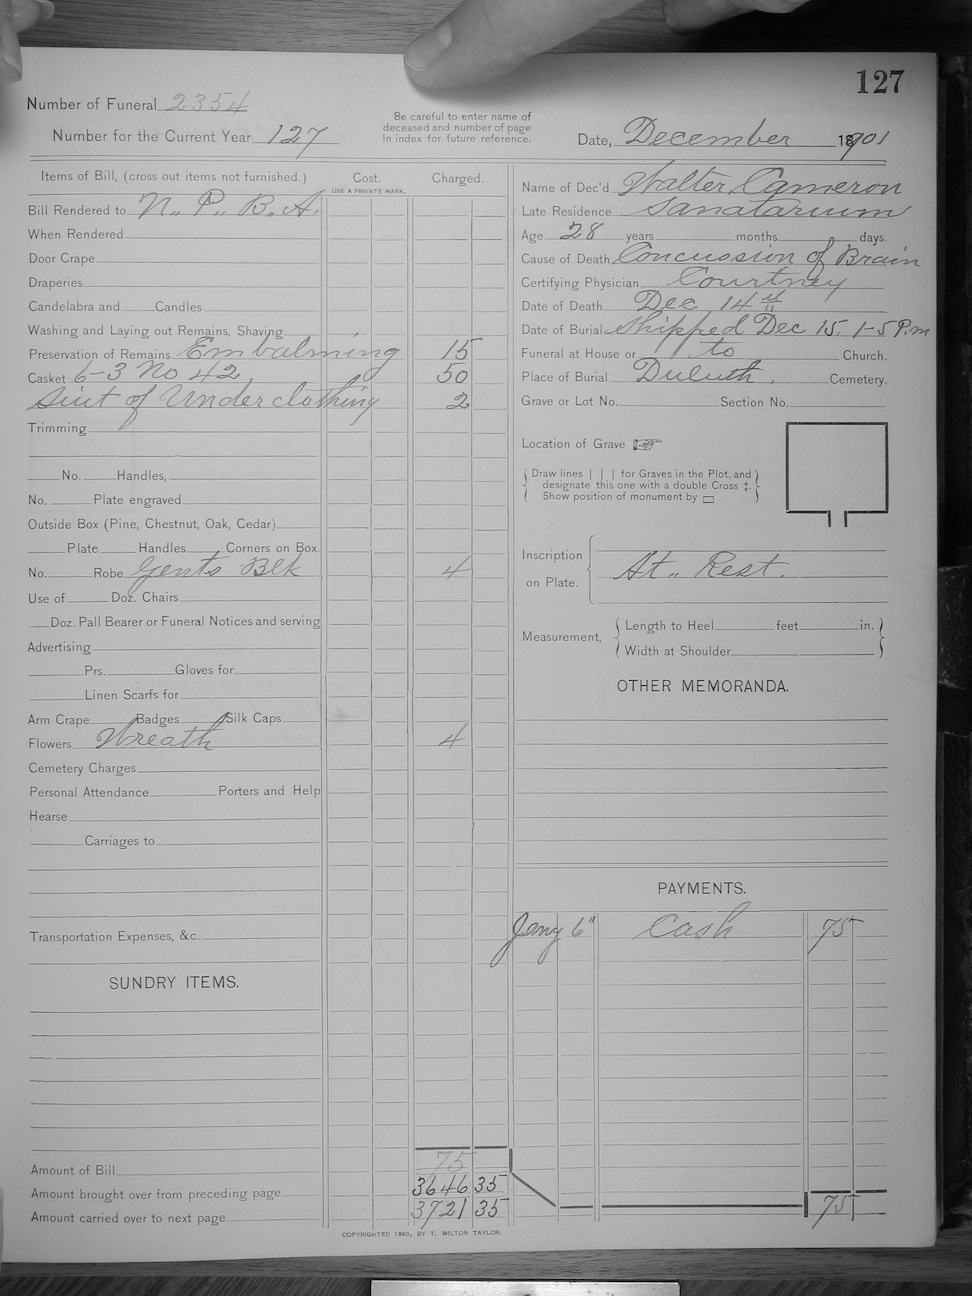 127
Number of Funeral 2354
Be careful to enter name of
deceased and number of page
in index for future reference.
Number for the Current Year 127
Date, December 1901
Items of Bill, (cross out items not furnished.)
Cost.
USE A PRIVATE MARK.
Charged.
Bill Rendered to N. P. B. A.
When Rendered
Door Crape
Draperies
Candelabra and Candles
Washing and Laying out Remains, Shaving
Preservation of Remains Embalming 15
Casket 6-3 No 42 50
Siut of Underclothing 2
Trimming
No. Handles,
No. Plate engraved
Outside Box (Pine, Chestnut, Oak, Cedar)
Plate Handles Corners on Box.
No. Robe Gents Blk 4
Use of Doz. Chairs
Doz. Pall Bearer or Funeral Notices and serving
Advertising
Prs. Gloves for
Linen Scarfs for
Arm Crape Badges Silk Caps
Flowers Wreath 4
Cemetery Charges
Personal Attendance Porters and Help
Hearse
Carriages to
Transportation Expenses, &c.
SUNDRY ITEMS.
Amount of Bill 75
Amount brought over from preceding page 3646 35
Amount carried over to next page 3721 35
Name of Dec'd Walter Cameron
Late Residence Sanatarium
Age 28 years months days.
Cause of Death Concussion of Brain
Certifying Physician Courtney
Date of Death Dec 14th
Date of Burial Shipped Dec 15. 1-5 P.m
Funeral at House or to Church.
Place of Burial Duluth. Cemetery.
Grave or Lot No. Section No.
Location of Grave
Draw lines | | | for Graves in the Plot, and
designate this one with a double Cross ‡.
Show position of monument by ▭
Inscription
on Plate.
At. Rest.
Measurement,
Length to Heel feet in.
Width at Shoulder
OTHER MEMORANDA.
PAYMENTS.
Jany 6" Cash 75
75
COPYRIGHTED 1890, BY T. MILTON TAYLOR.